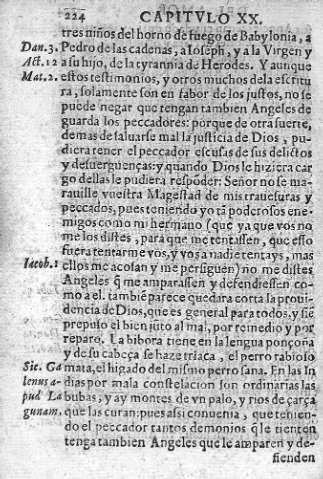 224 CAPITVLO XX.
tres niños del horno de fuego de Babylonia, a
Dan. 3. Pedro de las cadenas, a Ioseph, y a la Virgen y
Act. 12 a su hijo, de la tyrannia de Herodes. Y aunque
Mat. 2. estos testimonios, y otros muchos dela escritu
ra, solamente son en fabor de los justos, no se
puede negar que tengan tambien Angeles de
guarda los peccadores: porque de otra suerte,
demas de saluarse mal la justicia de Dios, pu-
diera tener el peccador escusas de sus delictos
y desuerguenças: y quando Dios le hiziera car
go dellas le pudiera respõder: Señor no se ma-
rauille vuestra Magestad de mis trauesuras y
peccados, pues teniendo yo tã poderosos ene-
migos como mi hermano (que ya que vos no
me los distes, para que me tentassen, que esso
fuera tentarme vos, y vos a nadie tentays, mas
Iacob. 1 ellos me acosan y me persiguen) no me distes
Angeles q̃ me amparassen y defendiessen co-
mo a el. tambiẽ parece quedara corta la proui-
dencia de Dios, que es general para todos, y siẽ
prepuso el bien jũto al mal, por remedio y por
reparo. La bibora tiene en la lengua ponçoña
y de su cabeça se haze triaca, el perro rabioso
Sic. Ga mata, el higado del mismo perro sana. En las In
lenus a- dias por mala constelacion son ordinarias las
pud La bubas, y ay montes de vn palo, y rios de çarça
gunam. que las curan: pues assi conuenia, que tenien-
do el peccador tantos demonios q̃ le tienten
tenga tambien Angeles que le amparen y de-
fienden